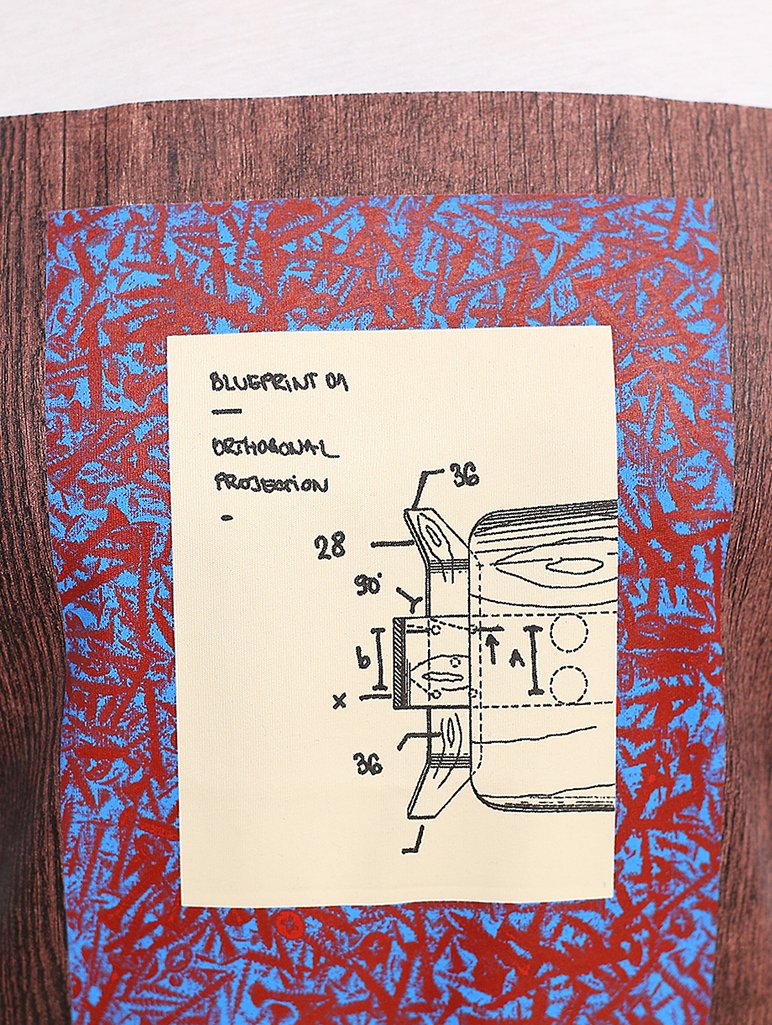 BLUEPRINT 01
ORTHOGONAL
PROJECTION
36
28
90°
b
A
x
36